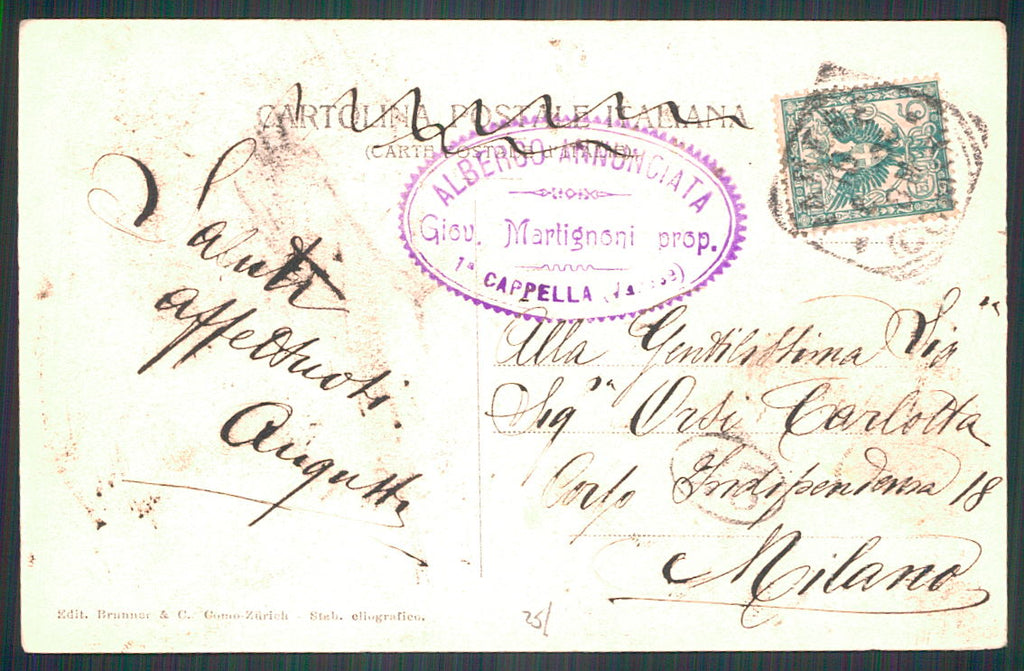 CARTOLINA POSTALE ITALIANA
(CARTE POSTALE D'ITALIE)
ALBERGO ANNUNCIATA
Giov. Martignoni prop.
1ª CAPPELLA (Varese)
Saluti
affettuosi
Augusta
Alla Gentilissima Sigª
Sigª Orsi Carlotta
Corso Indipendenza 18
Milano
Edit. Brunner & C., Como-Zürich - Stab. eliografico.
25/